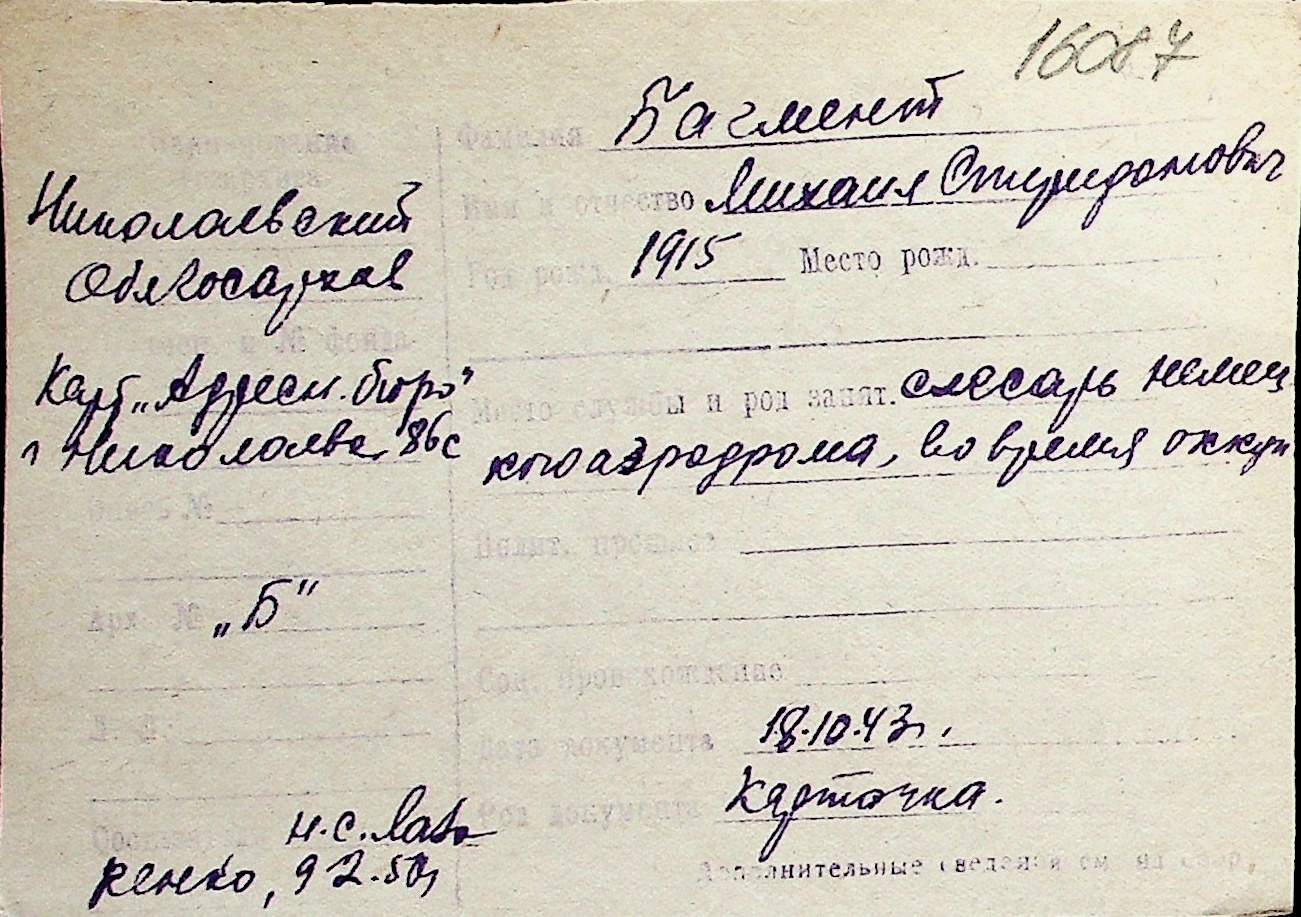 16087
Наименование
архива
Николаевский
Облгосархив
Наим. и № фонда
Карт. „Адресн. бюро"
г Николаева, 86с
Опись №
Арх. № „Б"
Л. Л.
Состав
н.с.
ренко, 9 2.50г
Фамилия Багмент
Имя и отчество Михаил Спиридонович
Год рожд. 1915 Место рожд.
Место службы и род занят. слесарь немец
кого аэродрома, во время оккуп
Полит. прошлое
Соц. происхождение
Дата документа 18.10.43г.
Род документа Карточка.
Дополнительные сведения см. на обор.